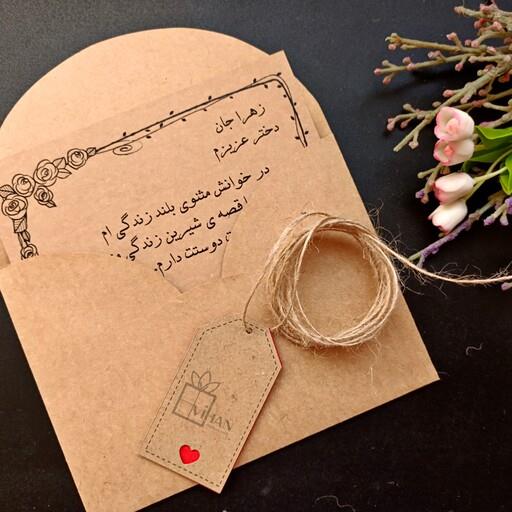 زهرا جان
دختر عزیزم
در خوانش مثنوی بلند زندگی ام
قصه ی شیرین زندگی
دوستت دارم.
MIHAN